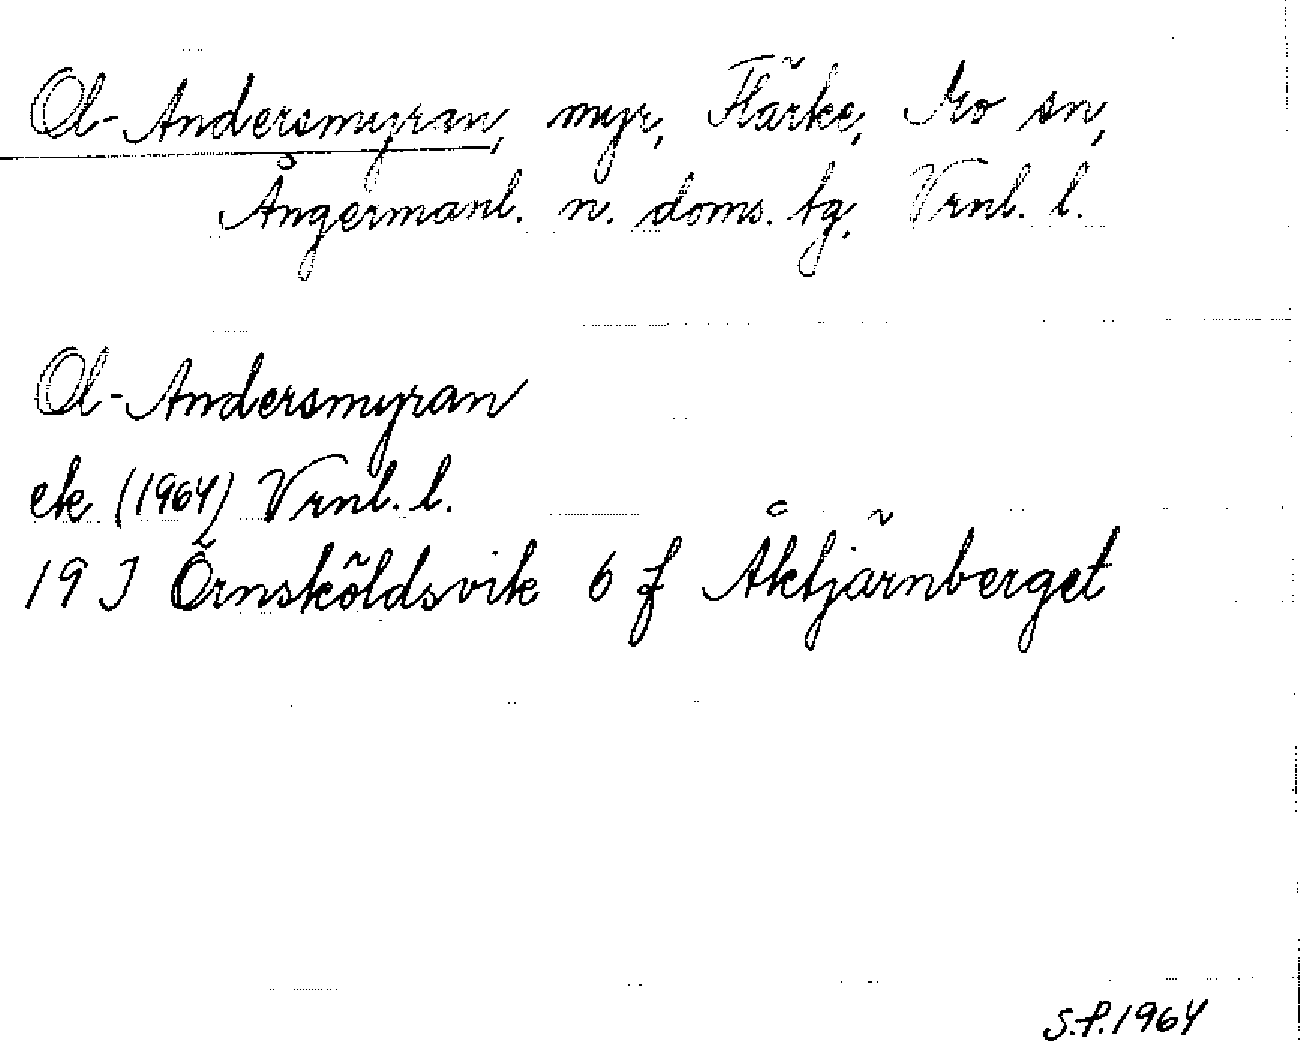 Ol-Andersmyran, myr, Flärke, Mo sn,
Ångermanl. n. doms. tg. Vrnl. l.
Ol-Andersmyran
ek (1964) Vrnl. l.
19 J Örnsköldsvik 6 f Åktjärnberget
S.P.1964